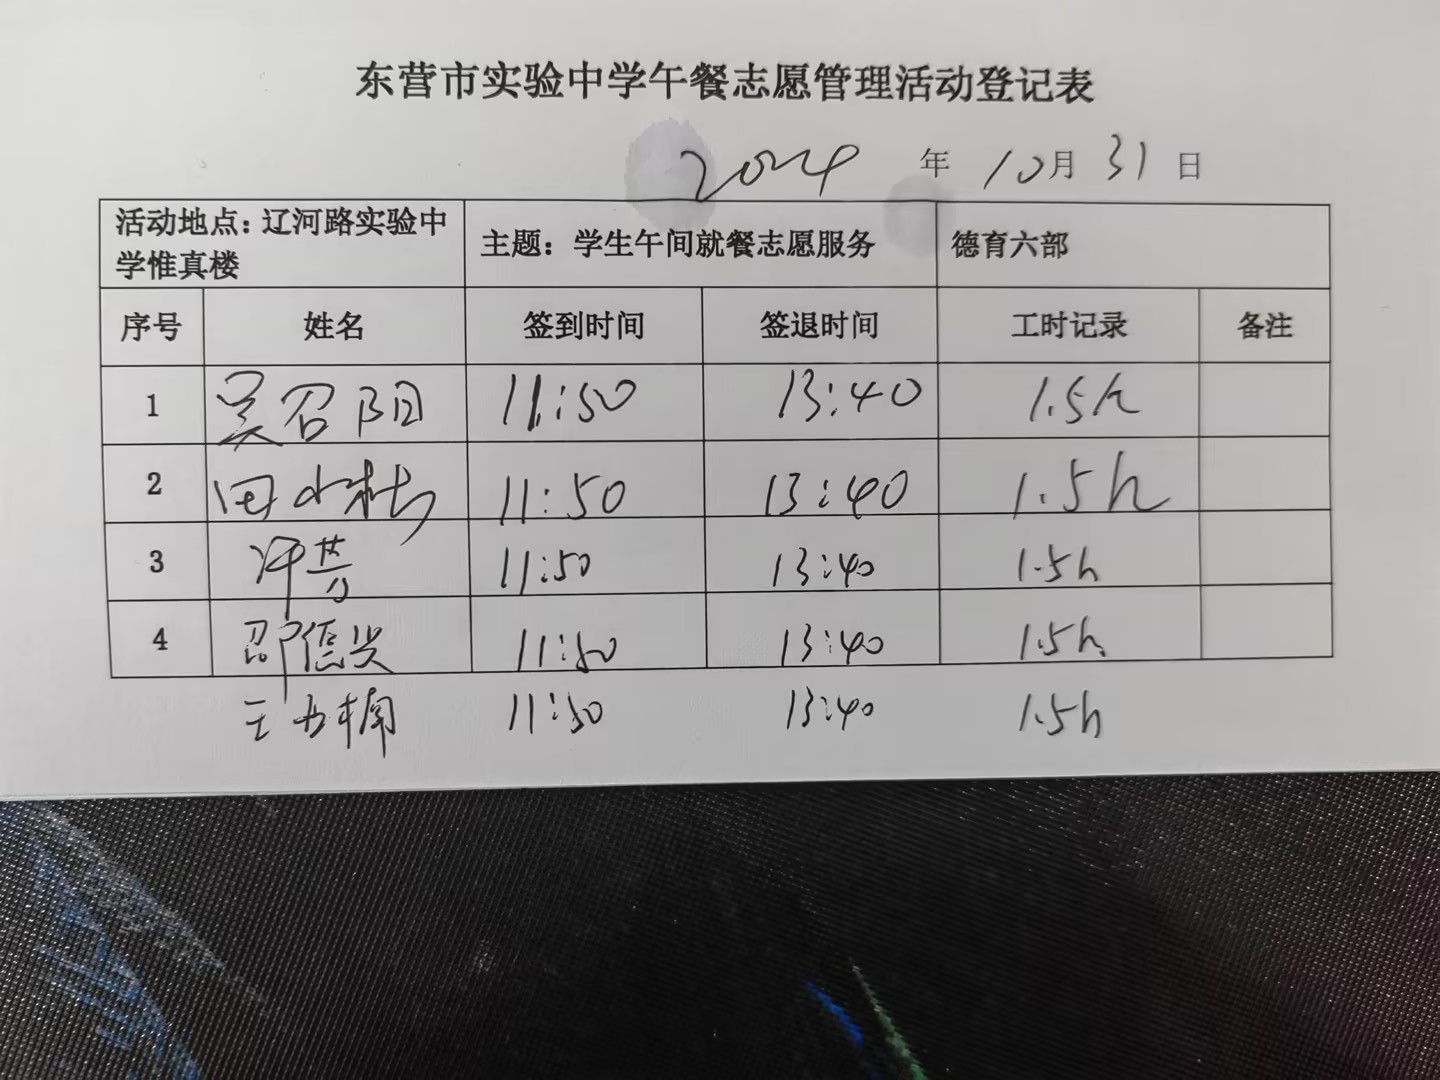 东营市实验中学午餐志愿管理活动登记表
2024 年 10月 31 日
活动地点：辽河路实验中学惟真楼 主题：学生午间就餐志愿服务 德育六部
序号 姓名 签到时间 签退时间 工时记录 备注
1 吴召阳 11:50 13:40 1.5h
2 田 11:50 13:40 1.5h
3 许芳 11:50 13:40 1.5h
4 邵信 11:50 13:40 1.5h
王 楠 11:50 13:40 1.5h